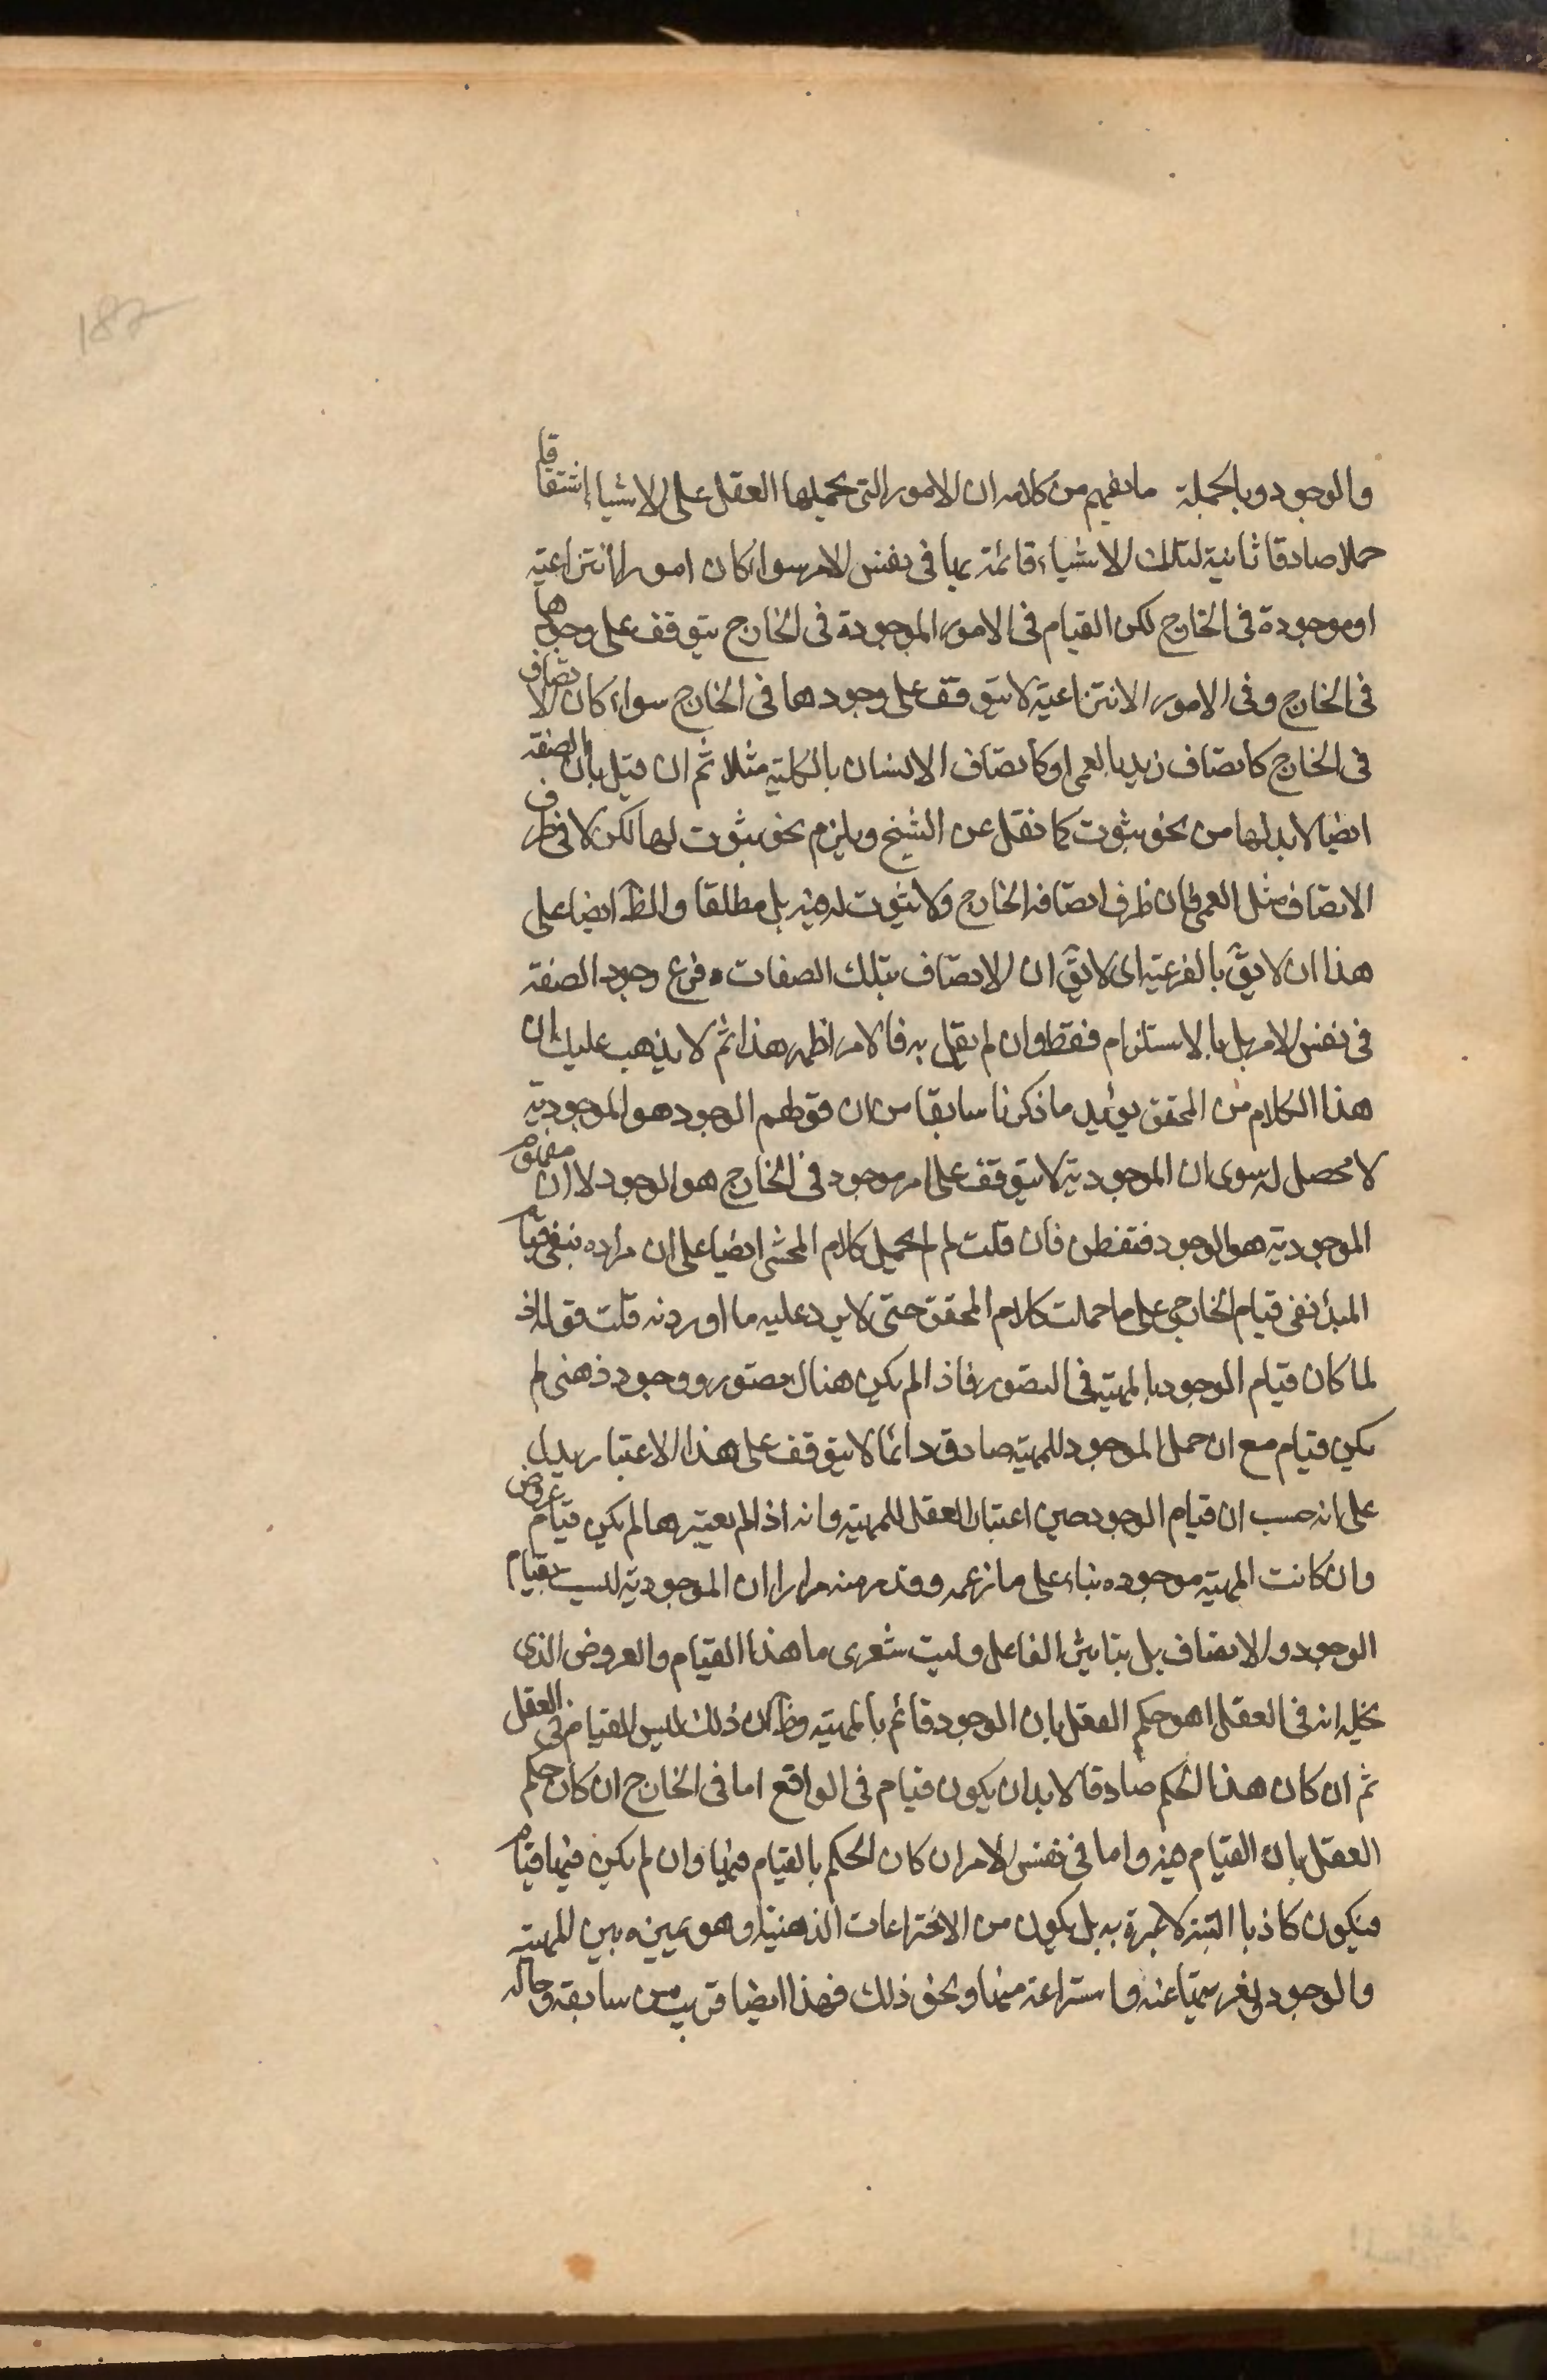 182
والوجود وبالجملة ما يفهم من كلامه ان الامور التى يحملها العقل على الاشياء اشتقاقا
حملا صادقا ثانية لتلك الاشياء قائمة بها فى نفس الامر سواء كان امورا انتزاعية
او موجودة فى الخارج لكن القيام فى الامور الموجودة فى الخارج يتوقف على وجودها
فى الخارج وفى الامور الانتزاعية لا يتوقف على وجودها فى الخارج سواء كان الاتصاف
فى الخارج كاتصاف زيد بالعمى او كاتصاف الانسان بالكلية مثلا ثم ان قيل بان الصفة
ايضا لابد لها من نحو ثبوت كما نقل عن الشيخ ويلزم نحو ثبوت لها لكن لا فى ظرف
الاتصاف مثل العمى فان ظرف اتصافه الخارج ولا ثبوت له فيه بل مطلقا والظ ايضا على
هذا ان لا يق بالفرعية اى لا يق ان الاتصاف بتلك الصفات فرع وجود الصفة
فى نفس الامر بل بالاستلزام فقط وان لم يقل به فالامر اظهر هذا ثم لا يذهب عليك ان
هذا الكلام من المحقق يؤيد ما ذكرنا سابقا من ان قولهم الوجود هو الموجودية
لا محصل له سوى ان الموجودية لا يتوقف على امر موجود فى الخارج هو الوجود لا ان مفهوم
الموجودية هو الوجود فتفطن فان قلت لم لم يحمل كلام المحشى ايضا على ان مراده بنفى قيام
المبدأ نفى قيام الخارجى على ما حملت كلام المحقق حتى لا يرد عليه ما اوردته قلت قوله اذ
لما كان قيام الوجود بالمهية فى التصور فاذا لم يكن هناك تصور ووجود ذهنى لم
يكن قيام مع ان حمل الموجود للمهية صادق دائما لا يتوقف على هذا الاعتبار يدل
على انه حسب ان قيام الوجود حين اعتبار العقل للمهية وانه اذا لم يعتبرها لم يكن قيام عروض
وان كانت المهية موجوده بناء على ما زعمه وقد مر منه مرارا ان الموجودية ليست بقيام
الوجود والاتصاف بل بتاثير الفاعل وليت شعرى ما هذا القيام والعروض الذى
يخيله انه فى العقل اهو حكم العقل بان الوجود قائم بالمهية وظ ان ذلك ليس القيام فى العقل
ثم ان كان هذا الحكم صادقا لابد ان يكون قيام فى الواقع اما فى الخارج ان كان حكم
العقل بان القيام فيه واما فى نفس الامر ان كان الحكم بالقيام فيها وان لم يكن فيها قيام
فيكون كاذبا البتة لا عبرة به بل يكون من الاختراعات الذهنية او هو تميزه بين المهية
والوجود وانتزاعه منها ونحو ذلك فهذا ايضا قريب من سابقه وحاله